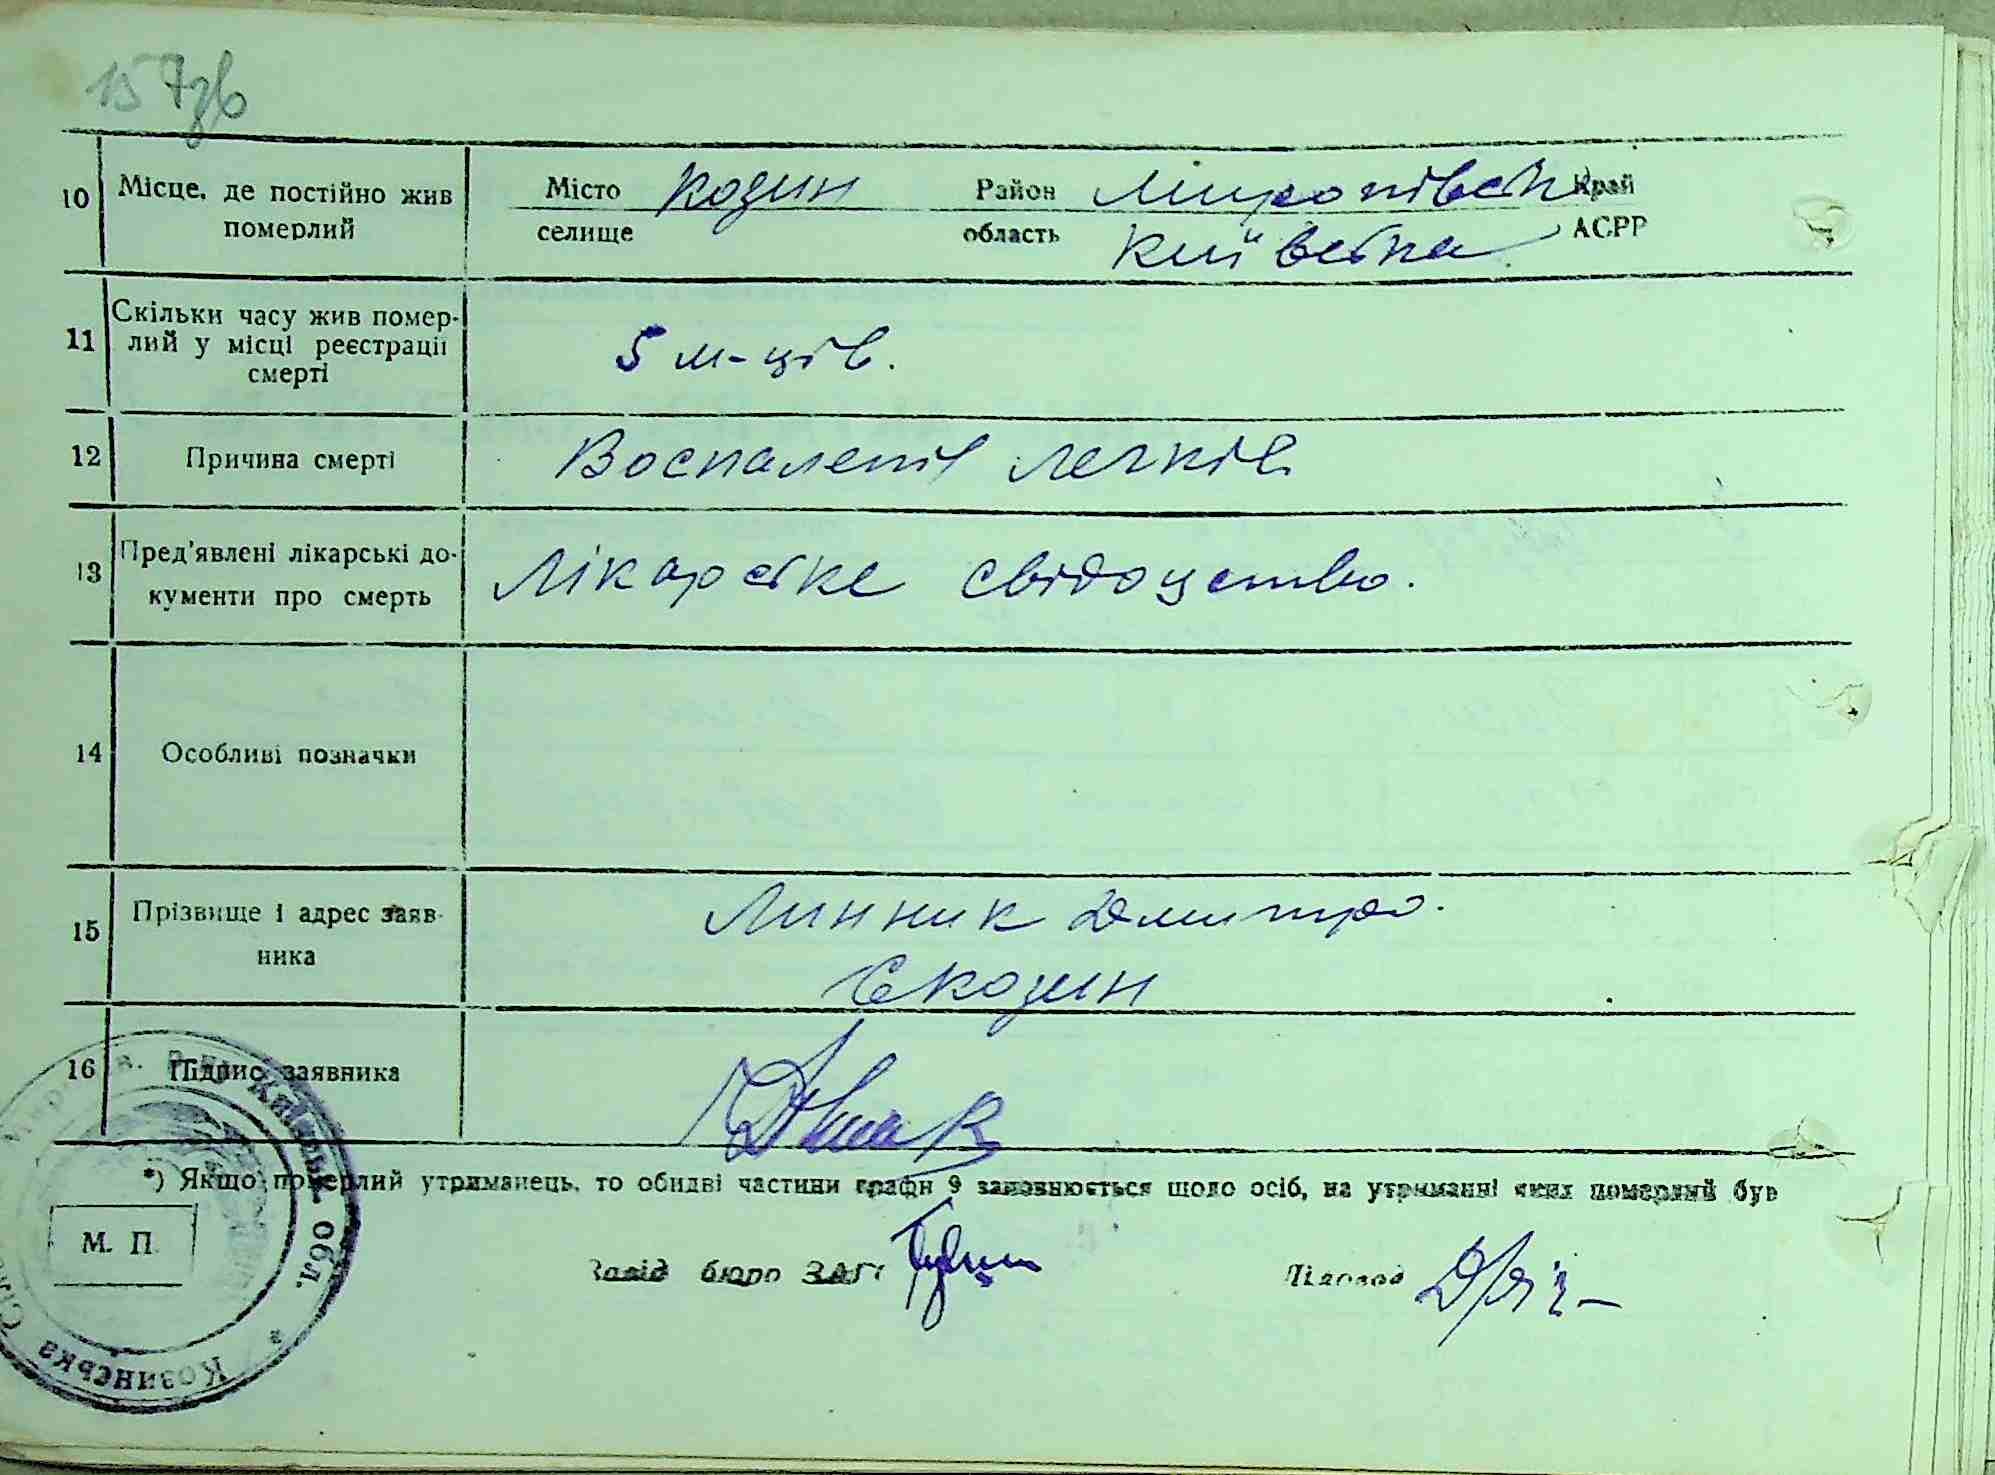 157зв
10 Місце, де постійно жив померлий
Місто селище Козин
Район Миропівськ Край
область Київська АСРР
11 Скільки часу жив помер-
лий у місці реєстрації
смерті
5 м-ців.
12 Причина смерті Воспаленія легків
13 Пред'явлені лікарські до-
кументи про смерть
Лікарське свідоцтво.
14 Особливі позначки
15 Прізвище і адрес заяв-
ника
Линник Дмитро.
С Козин
16 Підпис заявника
*) Якщо померлий утриманець, то обидві частини графи 9 заповнюється щодо осіб, на утриманні яких померлий був
М. П.
Завід бюро ЗАГС
Діловод
Київськ. Обл. * Козинська